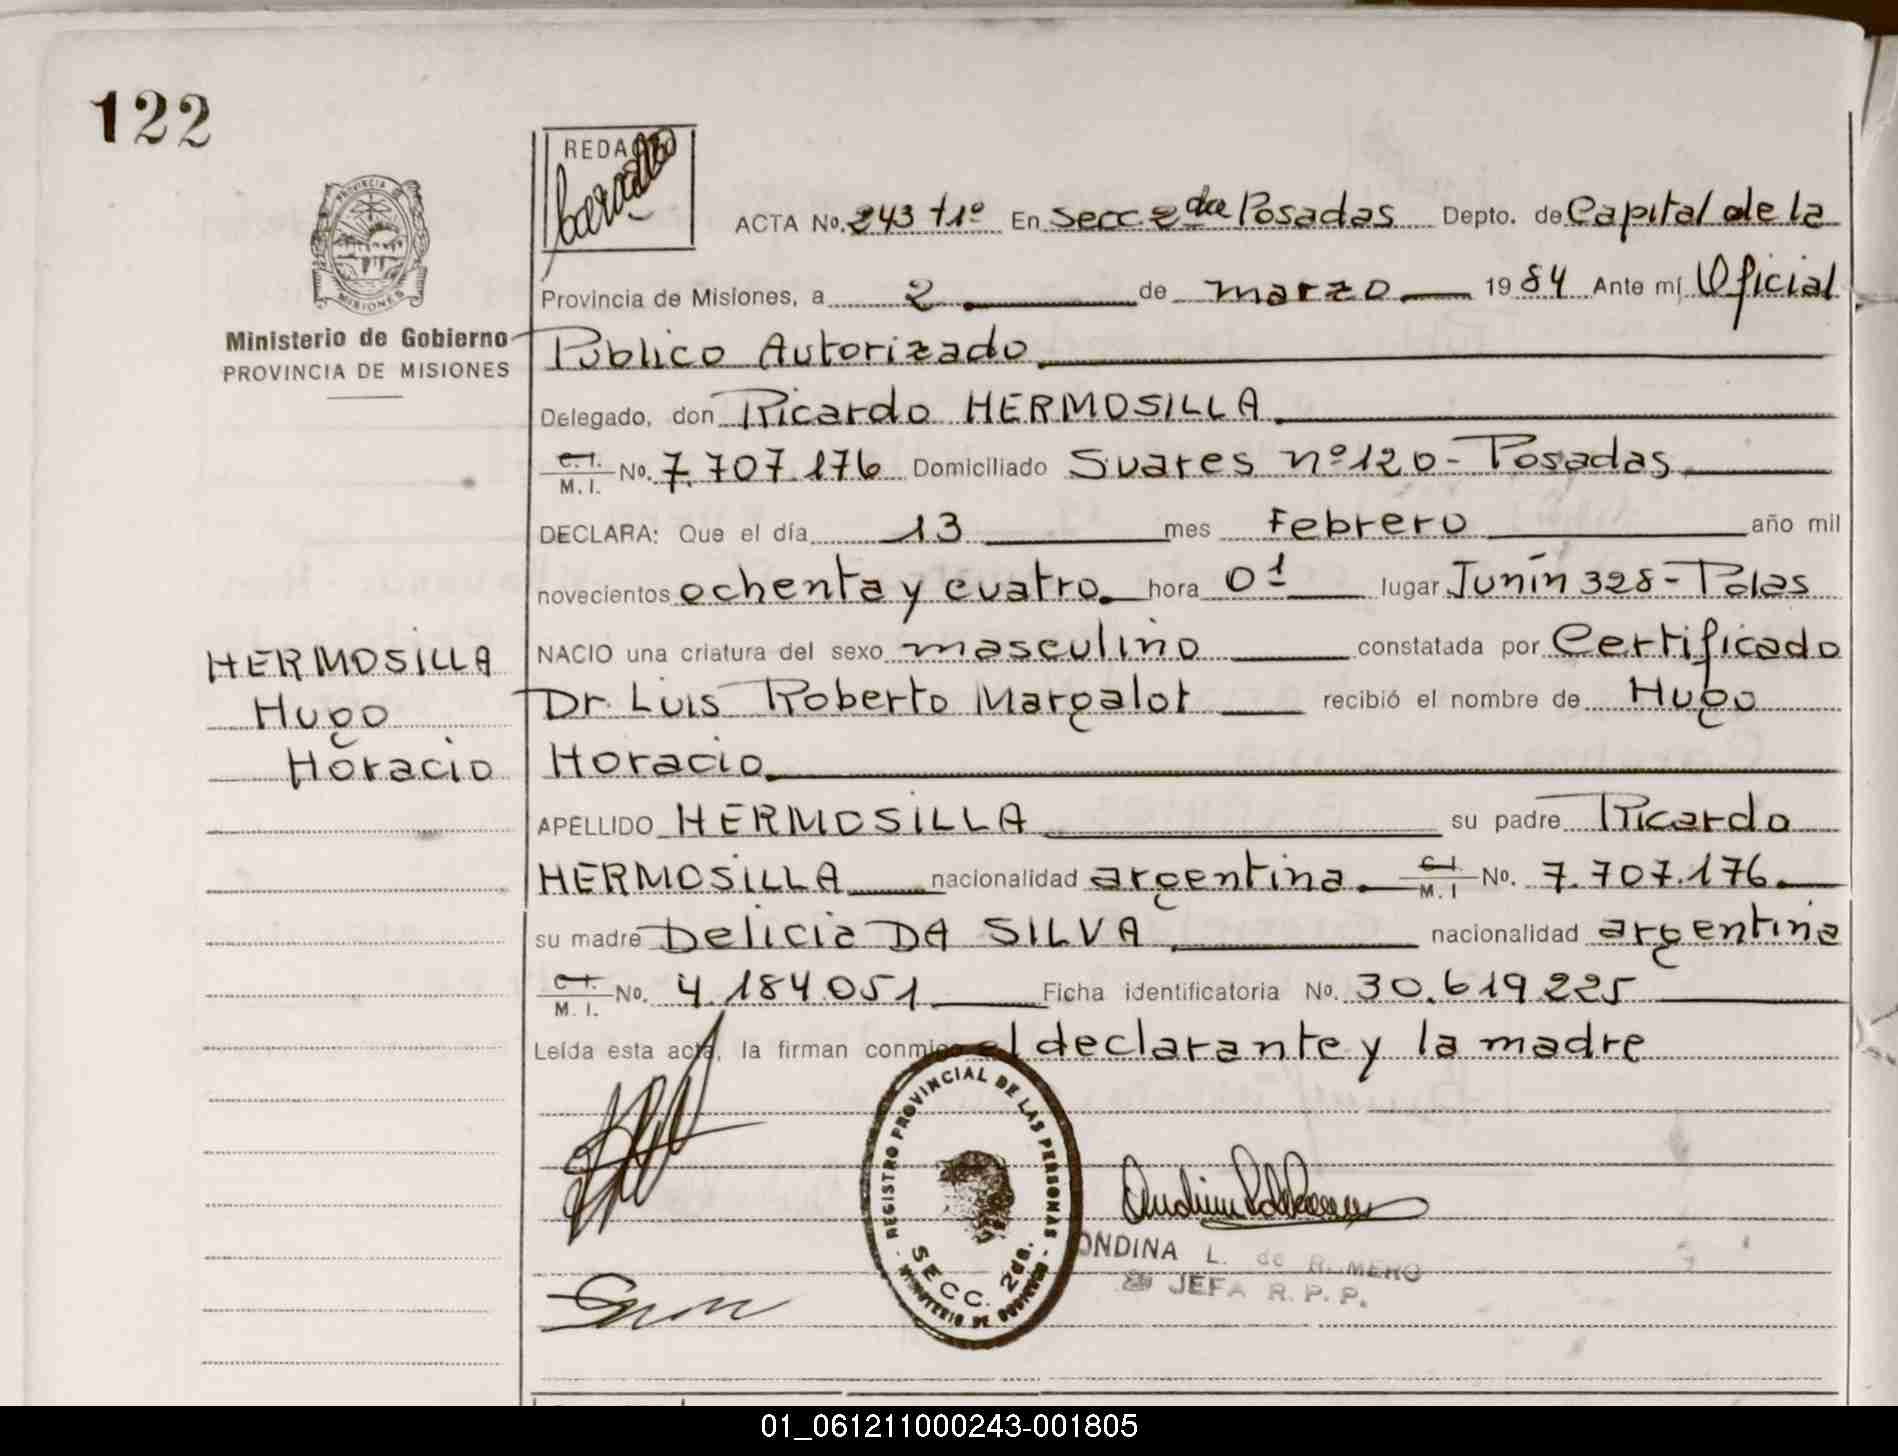 122
REDA
ACTA No. 243 t1º En Secc 2da Posadas Depto. de Capital de la
PROVINCIA DE MISIONES
Provincia de Misiones, a 2 de marzo 1984 Ante mí Oficial
Ministerio de Gobierno
PROVINCIA DE MISIONES
Público Autorizado
Delegado, don Ricardo HERMOSILLA
C.I. M.I. No. 7.707.176 Domiciliado Suares nº 120 - Posadas
DECLARA: Que el día 13 mes Febrero año mil
novecientos ochenta y cuatro hora 01 lugar Junín 328 - Pdas
NACIO una criatura del sexo masculino constatada por Certificado
Dr. Luis Roberto Margalot recibió el nombre de Hugo
Horacio
HERMOSILLA
Hugo
Horacio
APELLIDO HERMOSILLA su padre Ricardo
HERMOSILLA nacionalidad argentina C.I. M.I No. 7.707.176
su madre Delicia DA SILVA nacionalidad argentina
C.I. M.I. No. 4.184.051 Ficha identificatoria No. 30.619.225
Leída esta acta, la firman conmigo el declarante y la madre
REGISTRO PROVINCIAL DE LAS PERSONAS
SECC. 2da.
MINISTERIO DE GOBIERNO
ONDINA L. de ROMERO
JEFA R.P.P.
01_061211000243-001805